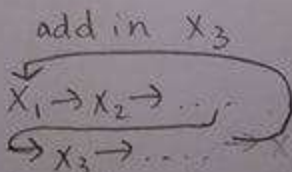 add in X₃
X₁ → X₂ → .....
→ X₃ → .....